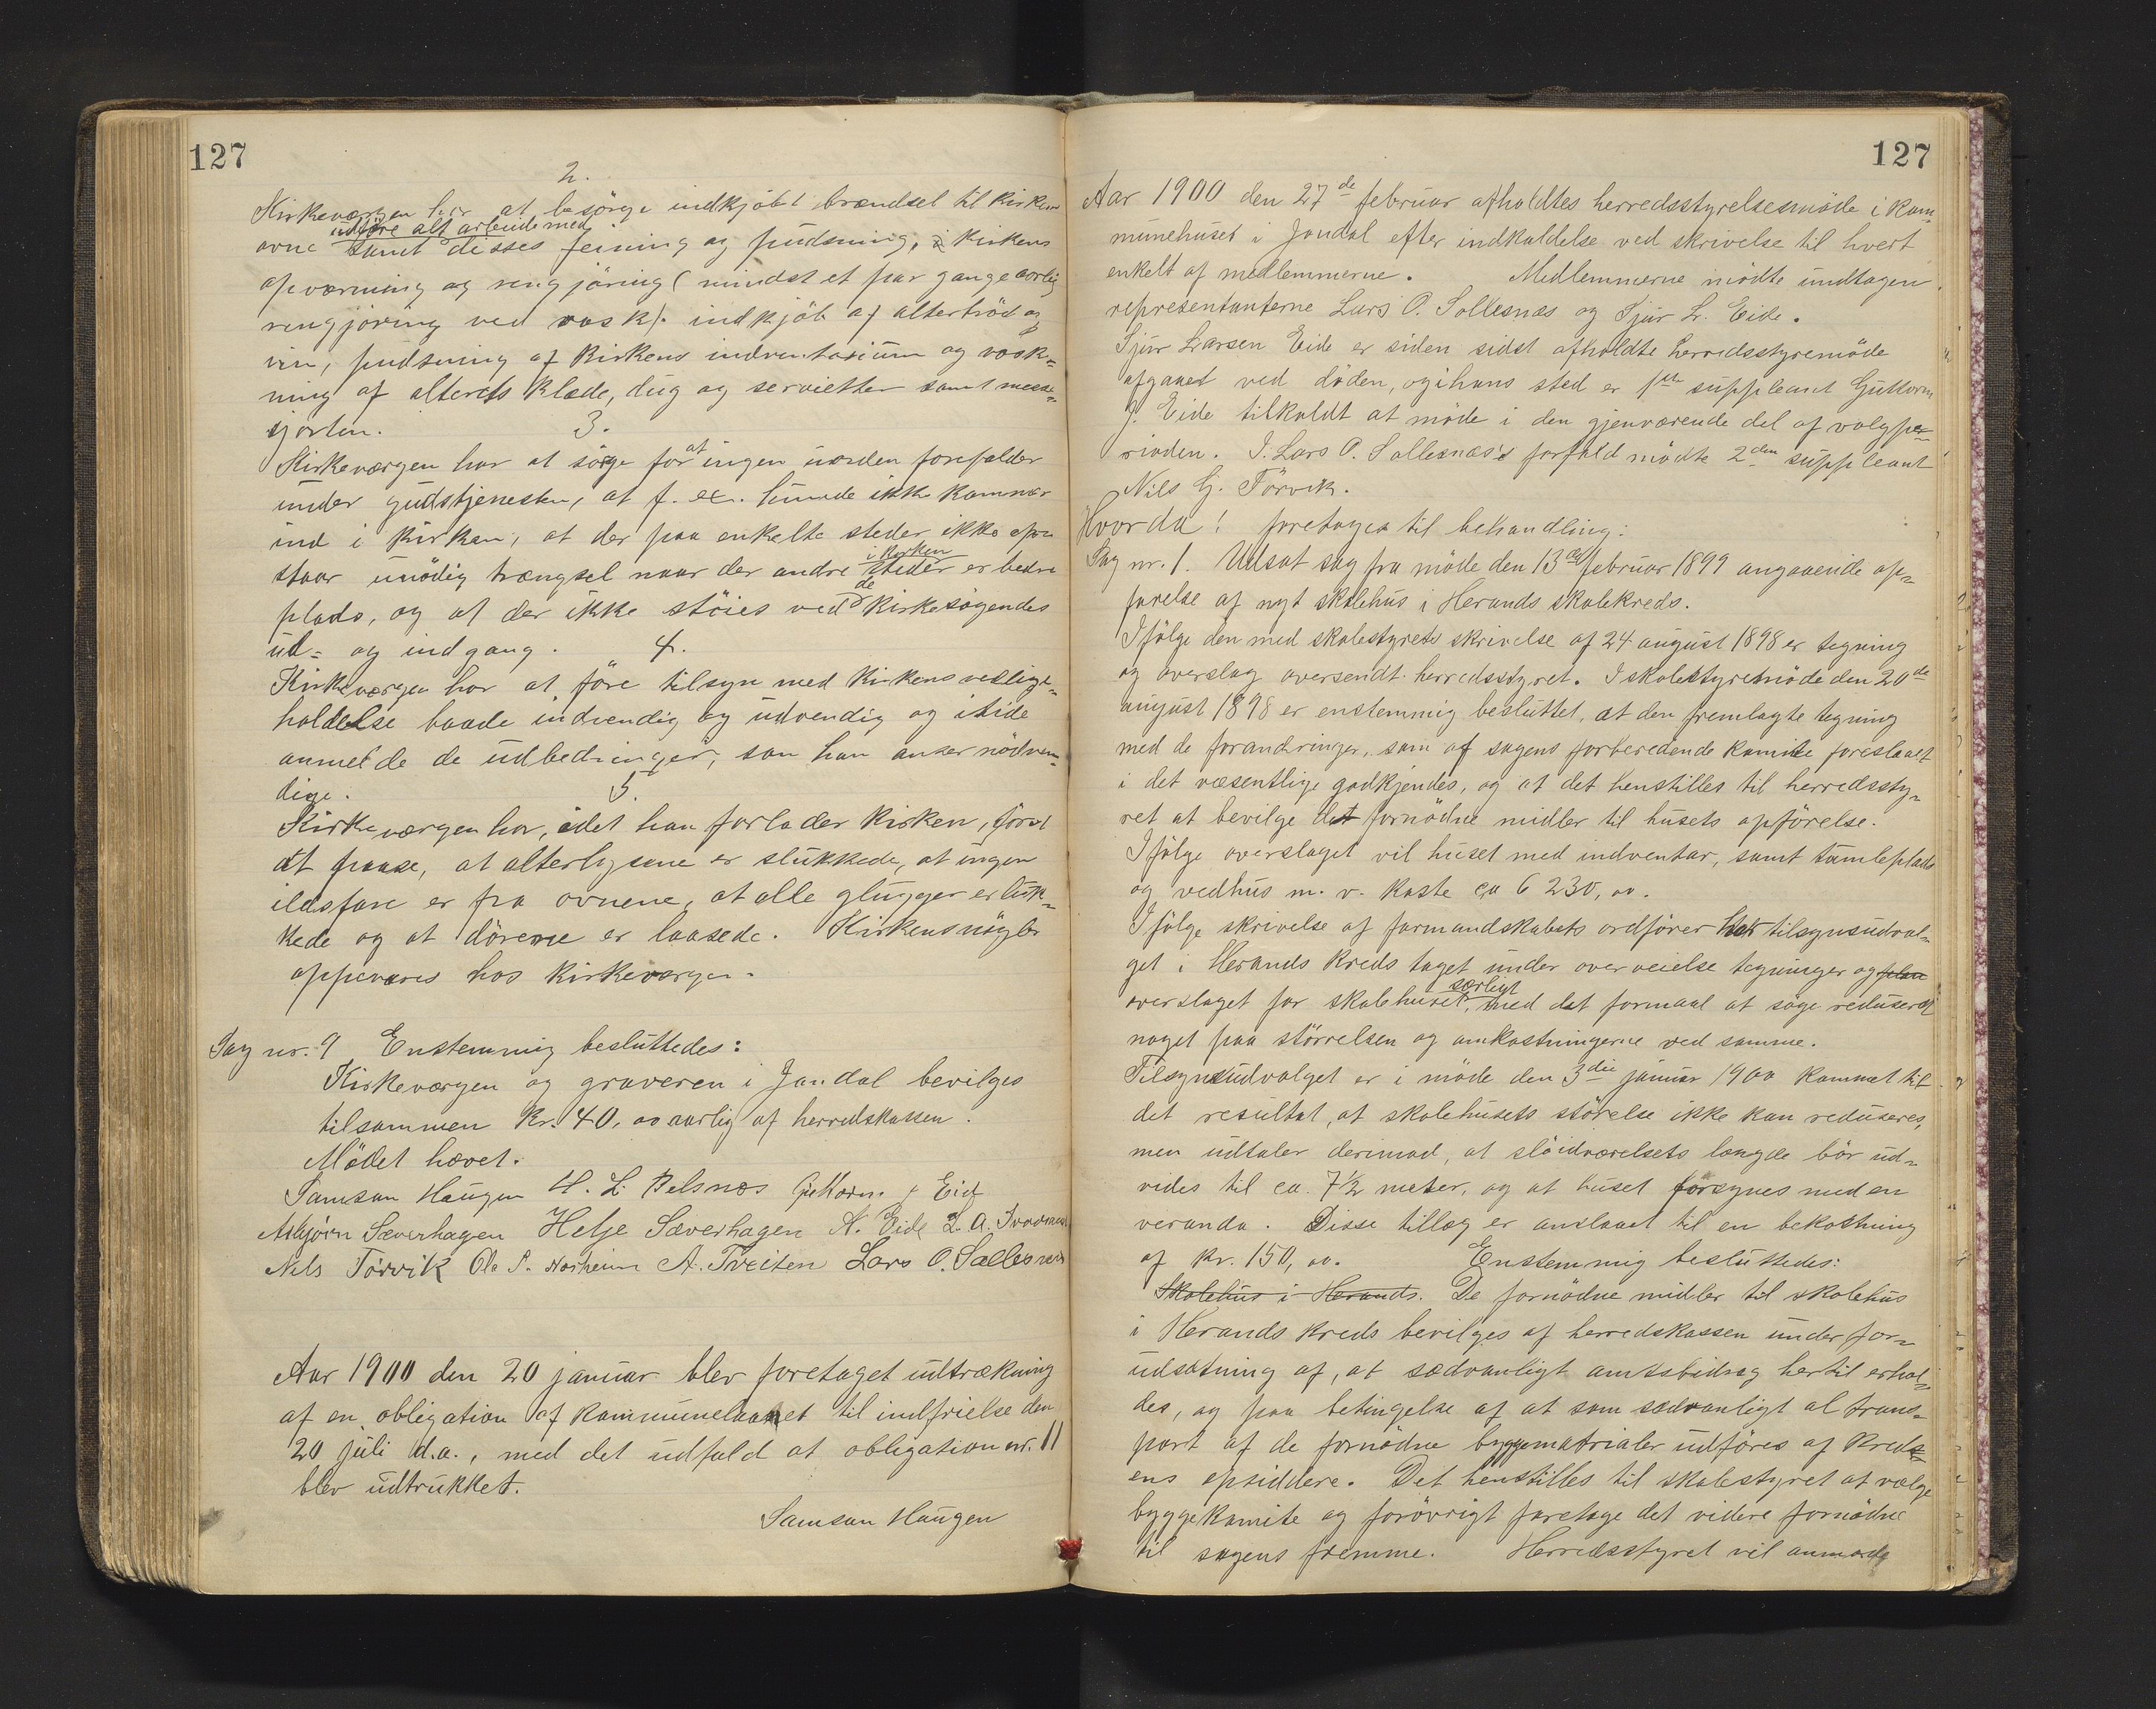 127
2.
Kirkeværgen har at besörge indkjöbt brændsel til kirkens
udföre alt arbeide med
ovne samt disses feining og pudsning, kirkens
opvarming og rengjöring (mindst et par gange aarlig
rengjöring ved vask). indkjöb af alterbröd og
vin, pudsning af kirkens indventarium og vask-
ning af alterets klæde, dug og servietter samt messe-
sjorten.
3.
Kirkeværgen har at sörge for at ingen uorden forefalder
under gudstjenesten, at f. ex. hunde ikke kommer
ind i kirken, at der paa enkelte steder ikke opa
i kirken
staar unödig trængsel naar der andre steder er bedre
plads, og at der ikke stöies ved de kirkesögendes
ud- og indgang.
4.
Kirkeværgen har at före tilsyn med kirkens vedlige-
holdelse baade indvendig og udvendig og itide
anmelde de udbedringer, som han anser nödven-
dige.
5.
Kirkeværgen har, idet han forlader kirken, först
at paase, at alterlysene er slukkede, at ingen
ildsfare er fra ovnene, at alle glugger er luk-
kede og at dörene er laasede. Kirkens nögler
oppevares hos kirkeværgen.
Sag nr. 9 Enstemmig besluttedes:
Kirkeværgen og graveren i Jondal bevilges
tilsammen kr. 40,00 aarlig af herredskassen.
Mödet hævet.
Samson Haugen H. L. Belsnæs Guttorm J Eide
Asbjörn Sæverhagen Helje Sæverhagen N. Eide L. A.
Nils Törvik Ole S. Norheim A. Tveiten Lars O. Sollesnæs
Aar 1900 den 20 januar blev foretaget udtrækning
af en obligation af kommunelaanet til indfrielse den
20 juli d.a., med det udfald at obligation nr. 11
blev udtrukket.
Samson Haugen
127
Aar 1900 den 27de februar afholdtes herredsstyrelsesmöde i kom-
munehuset i Jondal efter indkaldelse ved skrivelse til hvert
enkelt af medlemmerne. Medlemmerne mödte undtagen
representanterne Lars O. Sollesnæs og Sjur L. Eide.
Sjur Larsen Eide er siden sidst afholdte herredsstyremöde
afgaaet ved döden, og i hans sted er 1ste suppleant Guttorm
J. Eide tilkaldt at möde i den gjenværende del af valgpe-
rioden. I Lars O. Sollesnæs's forfald mödte 2den suppleant
Nils G. Törvik.
Hvorda: foretages til behandling:
Sag nr. 1. Udsat sag fra möde den 13de februar 1899 angaaende op-
förelse af nyt skolehus i Herands skolekreds.
Ifölge den med skolestyrets skrivelse af 24 august 1898 er tegning
og overslag oversendt herredsstyret. I skolestyremöde den 20de
august 1898 er enstemmig besluttet, at den fremlagte tegning
med de forandringer, som af sagens forberedende komite foreslaaet
i det væsentlige godkjendes, og at det henstilles til herredssty-
ret at bevilge det fornödne midler til husets opförelse.
Ifölge overslaget vil huset med indventar, samt tumleplads
og vedhus m. v. koste ca 6 230,00.
Ifölge skrivelse af formandskabets ordförer har tilsynsudval-
get i Herands kreds taget under overveielse tegninger og plan
særligt
overslaget for skolehuset, med det formaal at söge reduseret
noget paa störrelsen og omkostningerne ved samme.
Tilsynsudvalget er i möde den 3die januar 1900 kommet til
det resultat, at skolehusets störelse ikke kan reduseres,
men udtaler derimod, at slöidværelsets længde bör ud-
vides til ca. 7½ meter, og at huset forsynes med en
veranda. Disse tillæg er anslaaet til en bekostning
af kr. 150,00. Enstemmig besluttedes:
Skolehus i Herands. De fornödne midler til skolehus
i Herands kreds bevilges af herredskassen under for-
udsætning af, at sædvanligt amtsbidrag hertil erhol-
des, og paa betingelse af at som sædvanligt al trans-
port af de fornödne byggematrialer udföres af kreds-
ens opsiddere. Det henstilles til skolestyret at vælge
byggekomite og forövrigt foretage det videre fornödne
til sagens fremme. Herredsstyret vil anmode